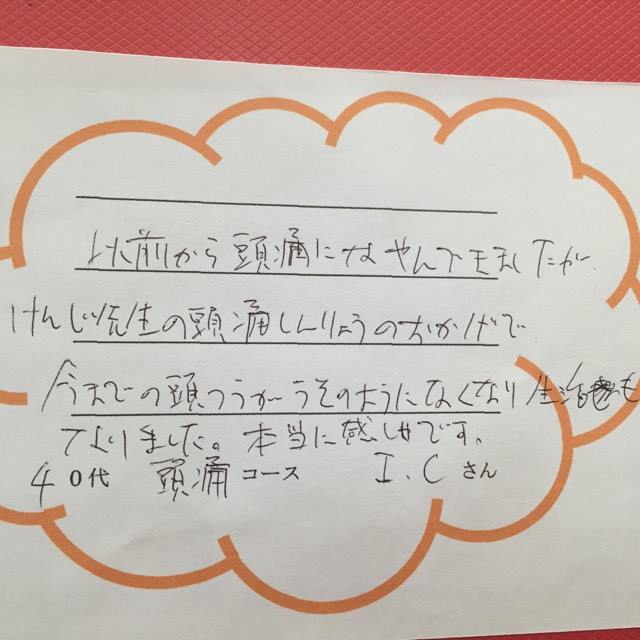 以前から頭痛になやんできましたが、
けんじ先生の頭痛しんりょうのおかげで
今までの頭つうがうそのようになくなり生活も
なりました。本当に感しゃです。
40代 頭痛コース I.Cさん